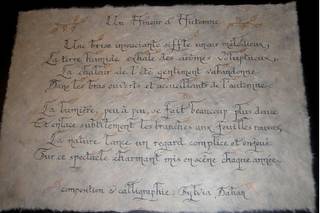 Un Amour d'Automne
Une brise insouciante siffle un air mélodieux,
La terre humide exhale des arômes voluptueux,
La chaleur de l'été gentiment s'abandonne
Dans les bras ouverts et accueillants de l'automne.
La lumière, peu à peu, se fait beaucoup plus douce
Et enlace subtilement les branches aux feuilles rousses,
La nature lance un regard complice et enjoué
Sur ce spectacle charmant mis en scène chaque année
composition & calligraphie: Sylvia